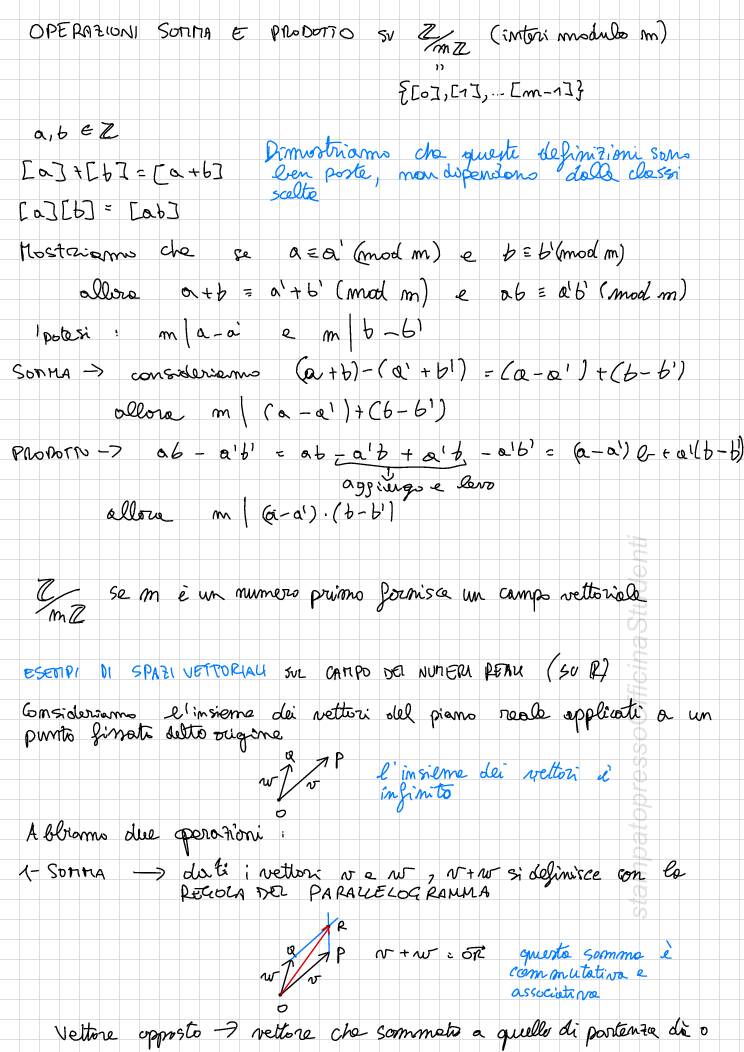 OPERAZIONI SOMMA E PRODOTTO SU ℤ/mℤ (interi modulo m)
"
{[0],[1],...[m-1]}
a,b ∈ ℤ
[a]+[b]=[a+b]
[a][b] = [ab]
Dimostriamo che queste definizioni sono
ben poste, non dipendono dalla classi
scelta
Mostriamo che se a≡a' (mod m) e b≡b'(mod m)
allora a+b ≡ a'+b' (mod m) e ab ≡ a'b' (mod m)
Ipotesi : m|a-a' e m|b-b'
SOMMA → consideriamo (a+b)-(a'+b') = (a-a')+(b-b')
allora m | (a-a')+(b-b')
PRODOTTO → ab - a'b' = ab - a'b + a'b - a'b' = (a-a')b + a'(b-b')
aggiungo e levo
allora m | (a-a')·(b-b')
ℤ/mℤ se m è un numero primo fornisce un campo vettoriale
ESEMPI DI SPAZI VETTORIALI SUL CAMPO DEI NUMERI REALI (SU ℝ)
Consideriamo l'insieme dei vettori del piano reale applicati a un
punto fissato detto origine
Q P
w v
O
l'insieme dei vettori è
infinito
Abbiamo due operazioni :
1- SOMMA → dati i vettori v e w , v+w si definisce con la
REGOLA DEL PARALLELOGRAMMA
R
Q P
w v
O
v+w = OR
questa somma è
commutativa e
associativa
Vettore opposto → vettore che sommato a quello di partenza dà 0
stampatopressoOfficinaStudenti